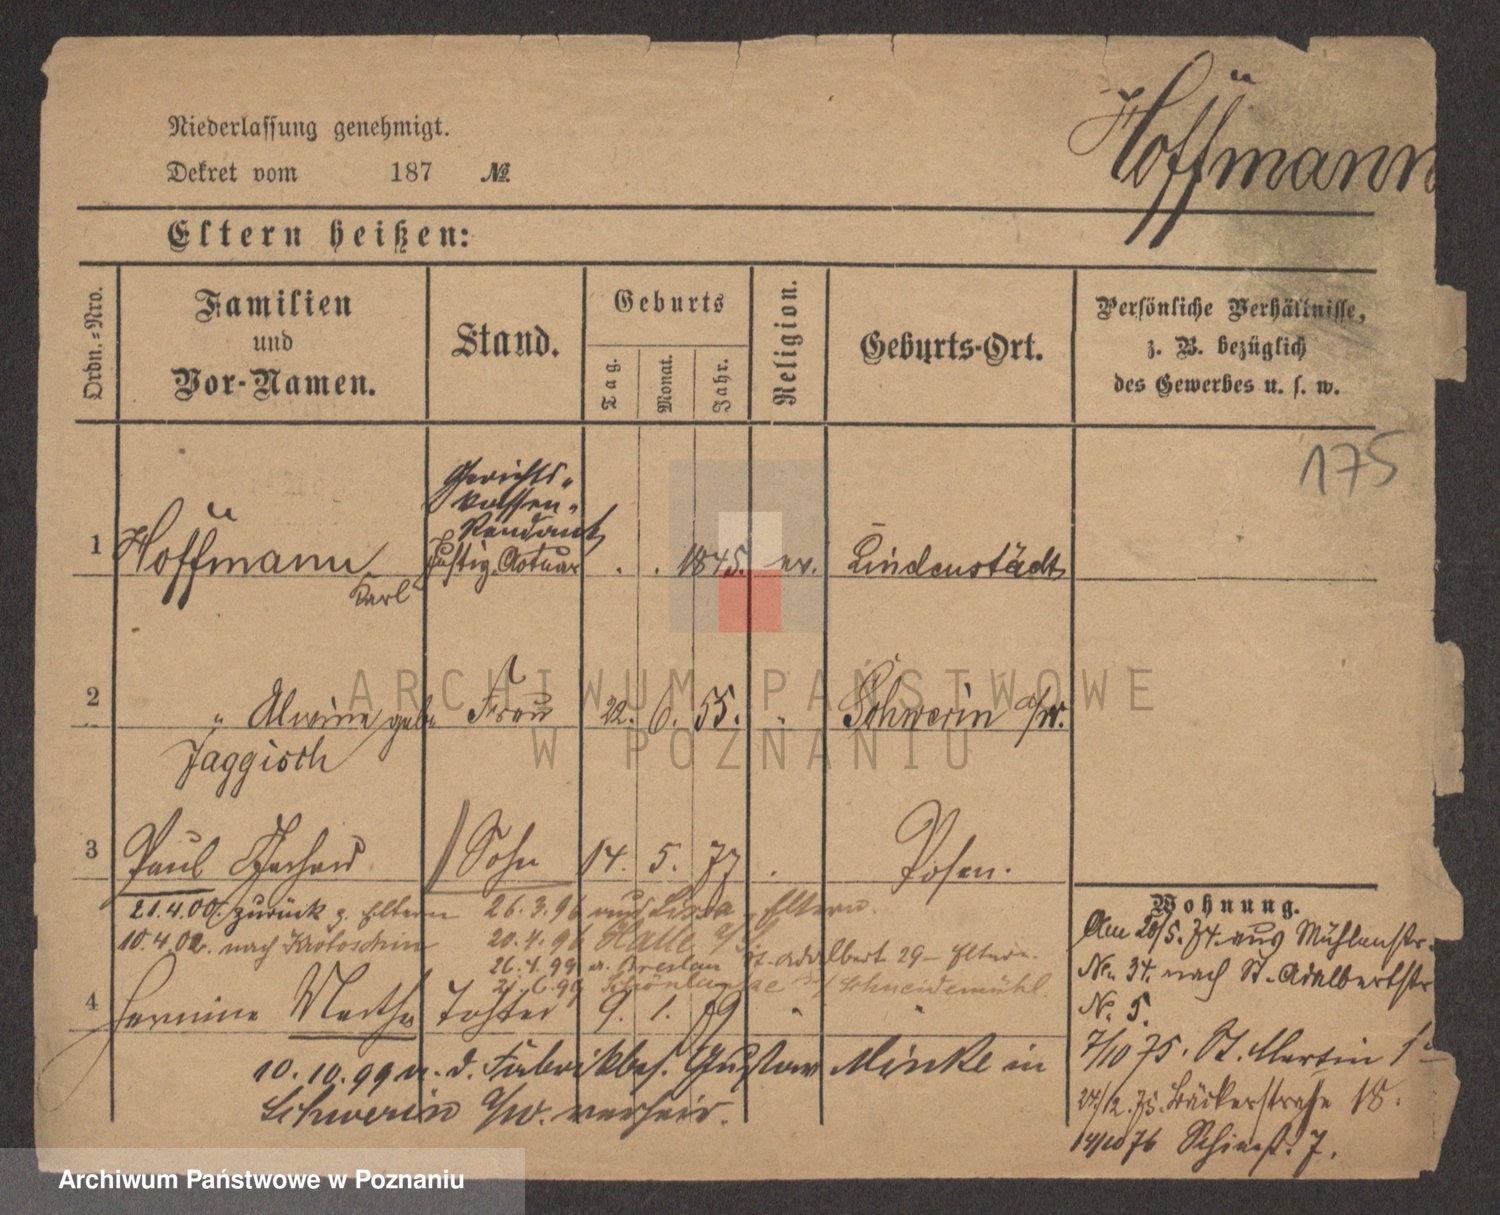 Hoffmann
Niederlassung genehmigt.
Dekret vom 187 №
Eltern heißen:
Ordn.-Nro.
Familien
und
Vor-Namen.
Stand.
Geburts
Tag.
Monat.
Jahr.
Religion.
Geburts-Ort.
Persönliche Verhältnisse,
z. B. bezüglich
des Gewerbes u. s. w.
175
Gerichts-
kassen-
Rendant
1 Hoffmann Justiz Actuar . . 1845. ev. Lindenstädt
Karl
2 " Alwine geb. Frau 22. 6. 55. " Schwerin a/W.
Jaggisch
3 Paul Gerhard Sohn 14. 5. 77 . Posen.
21.4.00. zurück z. Eltern 26.3.96 Lissa Eltern.
10.4.02. nach Krotoschin 20.4.96 Halle a/S.
26.4.99 a. Breslau St. Adalbert 29 – Eltern.
21.6.99 Schönlanke Schneidemühl
4 Hermine Martha Tochter 9. 1. 79 " "
10.10.99 a. d. Fabrikbes. Gustav Minke in
Schwerin a/W. verheir.
Wohnung.
Am 20/5. 74. aus Mühlenstr.
No. 34. nach St. Adalbertstr
No. 5.
7/10 75. St. Martin
27/12. 75. Bäckerstraße 18.
14/10 76 7.
ARCHIWUM PAŃSTWOWE
W POZNANIU
Archiwum Państwowe w Poznaniu